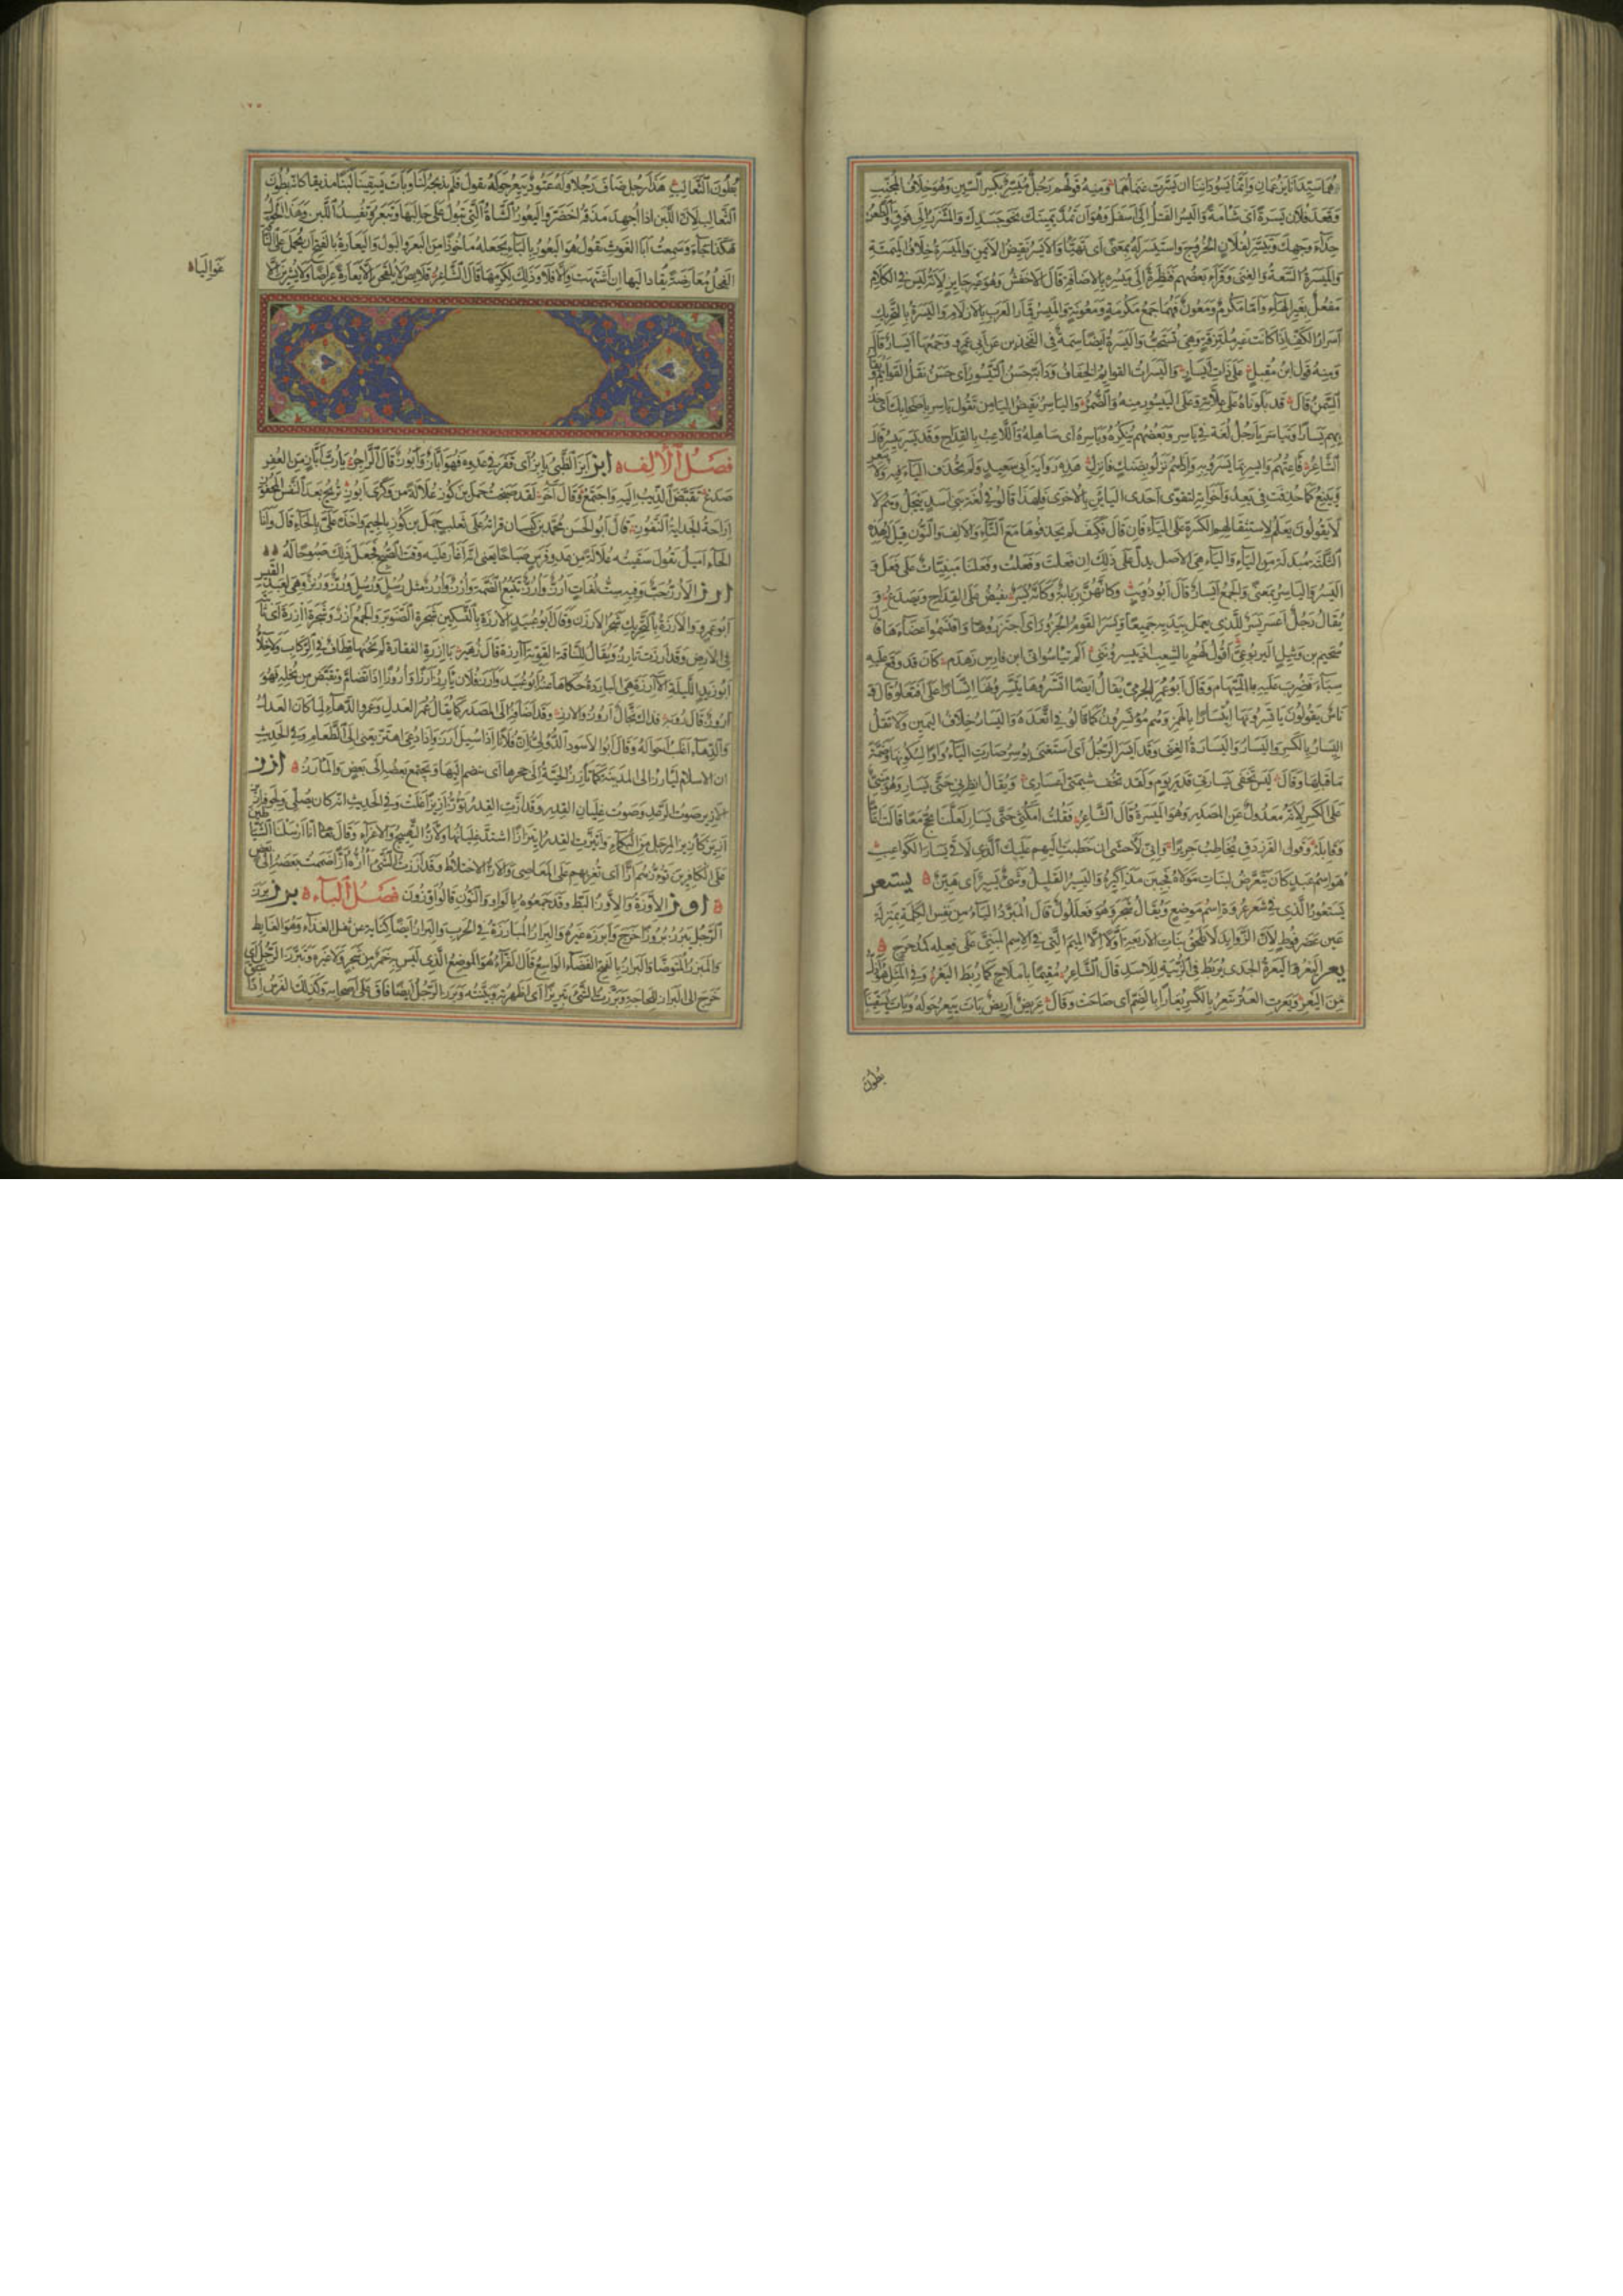 هما سيدانا يزعمان وانما يسوداننا ان يسرت غنماهما ومنه قولهم رجل ميسر بكسر السين وهو خلاف المجنب
وقعد فلان يسرة اى شامة واليسر الفتل الى اسفل وهو ان تمد يمينك نحو جسدك والشزر الى فوق
حذاء وجهك وتيسر لفلان الخروج واستيسر له بمعنى اى تهيا والايسر نقيض الايمن والميسرة خلاف الميمنة
والميسرة السعة والغنى وقرا بعضهم فنظرة الى ميسره بالاضافة قال الاخفش وهو غير جايز لانه ليس فى الكلام
مفعل بغير الهاء واما مكرم ومعون فهما جمع مكرمة ومعونة والميسر قمار العرب بالازلام واليسرة بالتحريك
اسرار الكف اذا كانت غير ملتزقة وهى تستحب واليسرة ايضا سمة فى الفخذين عن ابى عمرو وجمعها ايسار قال
ومنه قول ابن مقبل على ذات ايسار واليسرات القوايم الخفاف ودابة حسن التيسور اى حسن نقل القوايم
السمن قال قد بلوناه على علاته وعلى التيسور منه والضمر والياسر نقيض اليامن تقول ياسر باصحابك اى خذ
بهم يسارا وتياسر يا رجل لغة فى ياسر وبعضهم ينكره وياسره اى ساهله واللاعب بالقداح وقد يسر ييسر قال
الشاعر فاعنهم وايسر بما يسروا به واذا هم نزلوا بضنك فانزل هذه رواية ابى سعيد ولم تحذف الياء فيه ولا
وينيع كما حذفت فى يعد واخواته لتقوى احدى اليائين بالاخرى فلهذا قالوا فى لغة بنى اسد ييجل وهم لا
لا يقولون يعلم لاستثقالهم الكسرة على الياء فان قال فكيف لم يحذفوها مع التاء والالف والنون قيل له هذه
الثلثة مبدلة من الياء والياء هى الاصل يدل على ذلك ان فعلت وفعلت وفعلنا مبنيات على فعل
اليسر والياسر بمعنى والجمع ايسار قال ابو ذويب وكانهن ربابة وكانه يسر يفيض على القداح ويصدع و
يقال رجل اعسر يسر للذى يعمل بيديه جميعا ويسر القوم الجزور اى اجتزروها واقتسموا اعضاءها قال
سحيم بن وثيل اليربوعى اقول لهم بالشعب اذ ييسروننى الم تياسوا انى ابن فارس زهدم كان قد وقع عليه
سباء فضرب عليه بالسهام وقال ابو عمر الجرمى يقال ايضا اتسروها يتسرونها اتسارا على افتعلوا قال و
ناس يقولون ياتسرونها ايتسارا بالهمز وهم موتسرون كما قالوا فى اتعد واليسار خلاف اليمين ولا تقل
اليسار بالكسر واليسار واليسارة الغنى وقد ايسر الرجل اى استغنى يوسر صارت الياء واوا لسكونها وضمة
ما قبلها وقال ليس تخفى يسارتى قدر يوم ولقد تخف شيمتى اعسارى ويقال انظرنى حتى يسار وهو مبنى
على الكسر لانه معدول عن المصدر وهو الميسرة قال الشاعر فقلت امكثى حتى يسار لعلنا نحج معا قالت
وقابله وقول الفرزدق يخاطب جريرا وانى لاخشى ان خطبت اليهم عليك الذى لاقى يسار الكواعب
هو اسم عبد كان يتعرض لبنات مولاه فجببن مذاكيره واليسير القليل وشى يسير اى هين يستعر
يستعور الذى فى شعر عروة اسم موضع ويقال شجر وهو فعللول قال المبرد الياء من نفس الكلمة بمنزلة
عين عضرفوط لان الزوايد لا تلحق بنات الاربعة اولا الا الميم التى فى الاسم المبنى على فعله كمدحرج
يعر اليعر واليعرة الجدى يربط فى الزبية للاسد قال الشاعر مقيما باملاح كما ربط اليعر وفى المثل هو اذل
من اليعر ويعرت العنز تيعر بالكسر يعارا بالضم اى صاحت وقال عريض اريض بات ييعر حوله وبات يسقينا
بطون
بطون الثعالب هذا رجل ضاف رجلا وله عتود ييعر حوله يقول فلم يذبحه لنا وبات يسقينا لبنا مذيقا كانه بطون
الثعالب لان اللبن اذا اجهد مذقه اخضر واليعور الشاة التى تبول على حالبها وتبعر وتفسد اللبن وهذا الحرف
هكذا جاء وسمعت ابا الغوث يقول هو البعور بالباء يجعله ماخوذا من البعر والبول واليعارة بالفتح ان يحمل على الناقة
الفحل معارضة يقاد اليها ان اشتهت والا فلا وذلك لكرمها قال الشاعر قلايص لا يلقحن الا يعارة عراضا ولا يشرين الا
غواليا
فصل الالف ابز ابز الظبى يابز اى قفز فى عدوه فهو اباز وابوز قال الراجز يا رب اباز من العفر
صدع تقبض الذيب اليه واجتمع وقال اخر لقد صبحت حمل بن كوز علالة من وكرى ابوز تريح بعد النفس المحفوز
اراحة الجداية النفوز قال ابو الحسن محمد بن كيسان قراته على ثعلب جمل بن كوز بالجيم واخذه على بالحاء قال وانا
الى الحاء اميل يقول سقيته علالة من عدو فرس صباحا يعنى انه اغار عليه وقت الصبح فجعل ذلك صبوحا له
ارز الارز حب وفيه ست لغات ارز وارز تتبع الضمة الضمة وارز وارز مثل رسل ورسل ورز ورنز وهى لعبد القيس
ابو عمرو والارزة بالتحريك شجر الارزن وقال ابو عبيد الارزة بالتسكين شجرة الصنوبر والجمع ارز وشجرة ارزة اى ثابتة
فى الارض وقد ارزت تارز ويقال للناقة القوية ارزة قال زهير بارزة الفقارة لم يخنها قطاف فى الركاب ولا خلا
ابو زيد الليلة الارزة هى الباردة حكاها عنه ابو عبيد وارز فلان يارز ارزا واروزا اذا تضام وتقبض من بخله فهو
اروز قال روبة فذاك بخال اروز الارز وقد اضافه الى المصدر كما يقال عمر العدل وعمرو الدهاء لما كان العدل
والدهاء اغلب احواله وقال ابو الاسود الدولى ان فلانا اذا سيل ارز واذا دعى اهتز يعنى الى الطعام وفى الحديث
ان الاسلام ليارز الى المدينة كما تارز الحية الى جحرها اى ينضم اليها ويجتمع بعضه الى بعض والمارز ازز
الازيز صوت الرعد وصوت غليان القدر وقد ازت القدر توز ازيزا غلت وفى الحديث انه كان يصلى ولجوفه
ازيز كازيز المرجل من البكاء وائتزت القدر ايتزازا اشتد غليانها والاز التهييج والاغراء وقال تعالى انا ارسلنا الشياطين
على الكافرين توزهم ازا اى تغريهم على المعاصى والاز الاختلاط وقد اززت الشى اوزه ازا ضممت بعضه الى بعض
اوز الاوزة والاوز البط وقد جمعوه بالواو والنون قالوا اوزون فصل الباء برز برز
الرجل يبرز بروزا خرج وابرزه غيره والبراز المبارزة فى الحرب والبراز ايضا كناية عن ثفل الغذاء وهو الغايط
والمبرز المتوضا والبراز بالفتح الفضاء الواسع قال الفراء هو الموضع الذى ليس به خمر من شجر ولا غيره وتبرز الرجل اى
خرج الى البراز للحاجة وبرزت الشى تبريزا اى اظهرته وبينته وبرز الرجل ايضا فاق على اصحابه وكذلك الفرس اذا